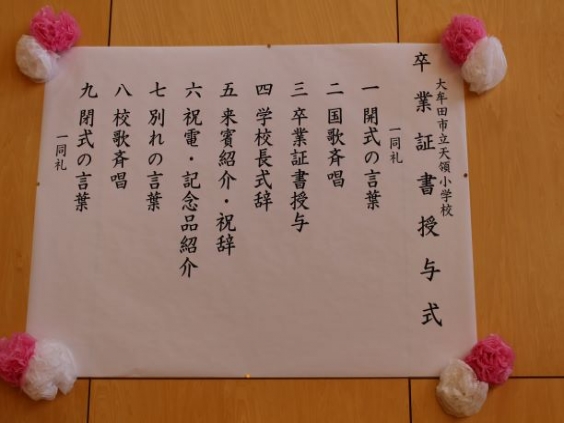 卒業証書授与式
大牟田市立天領小学校
一同礼
一 開式の言葉
二 国歌斉唱
三 卒業証書授与
四 学校長式辞
五 来賓紹介・祝辞
六 祝電・記念品紹介
七 別れの言葉
八 校歌斉唱
九 閉式の言葉
一同礼